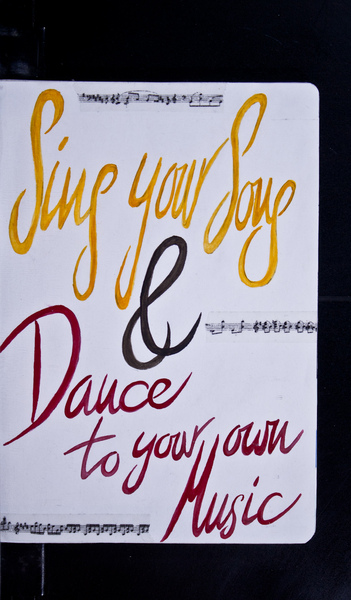 Sing your Song
&
Dance
to your own
Music